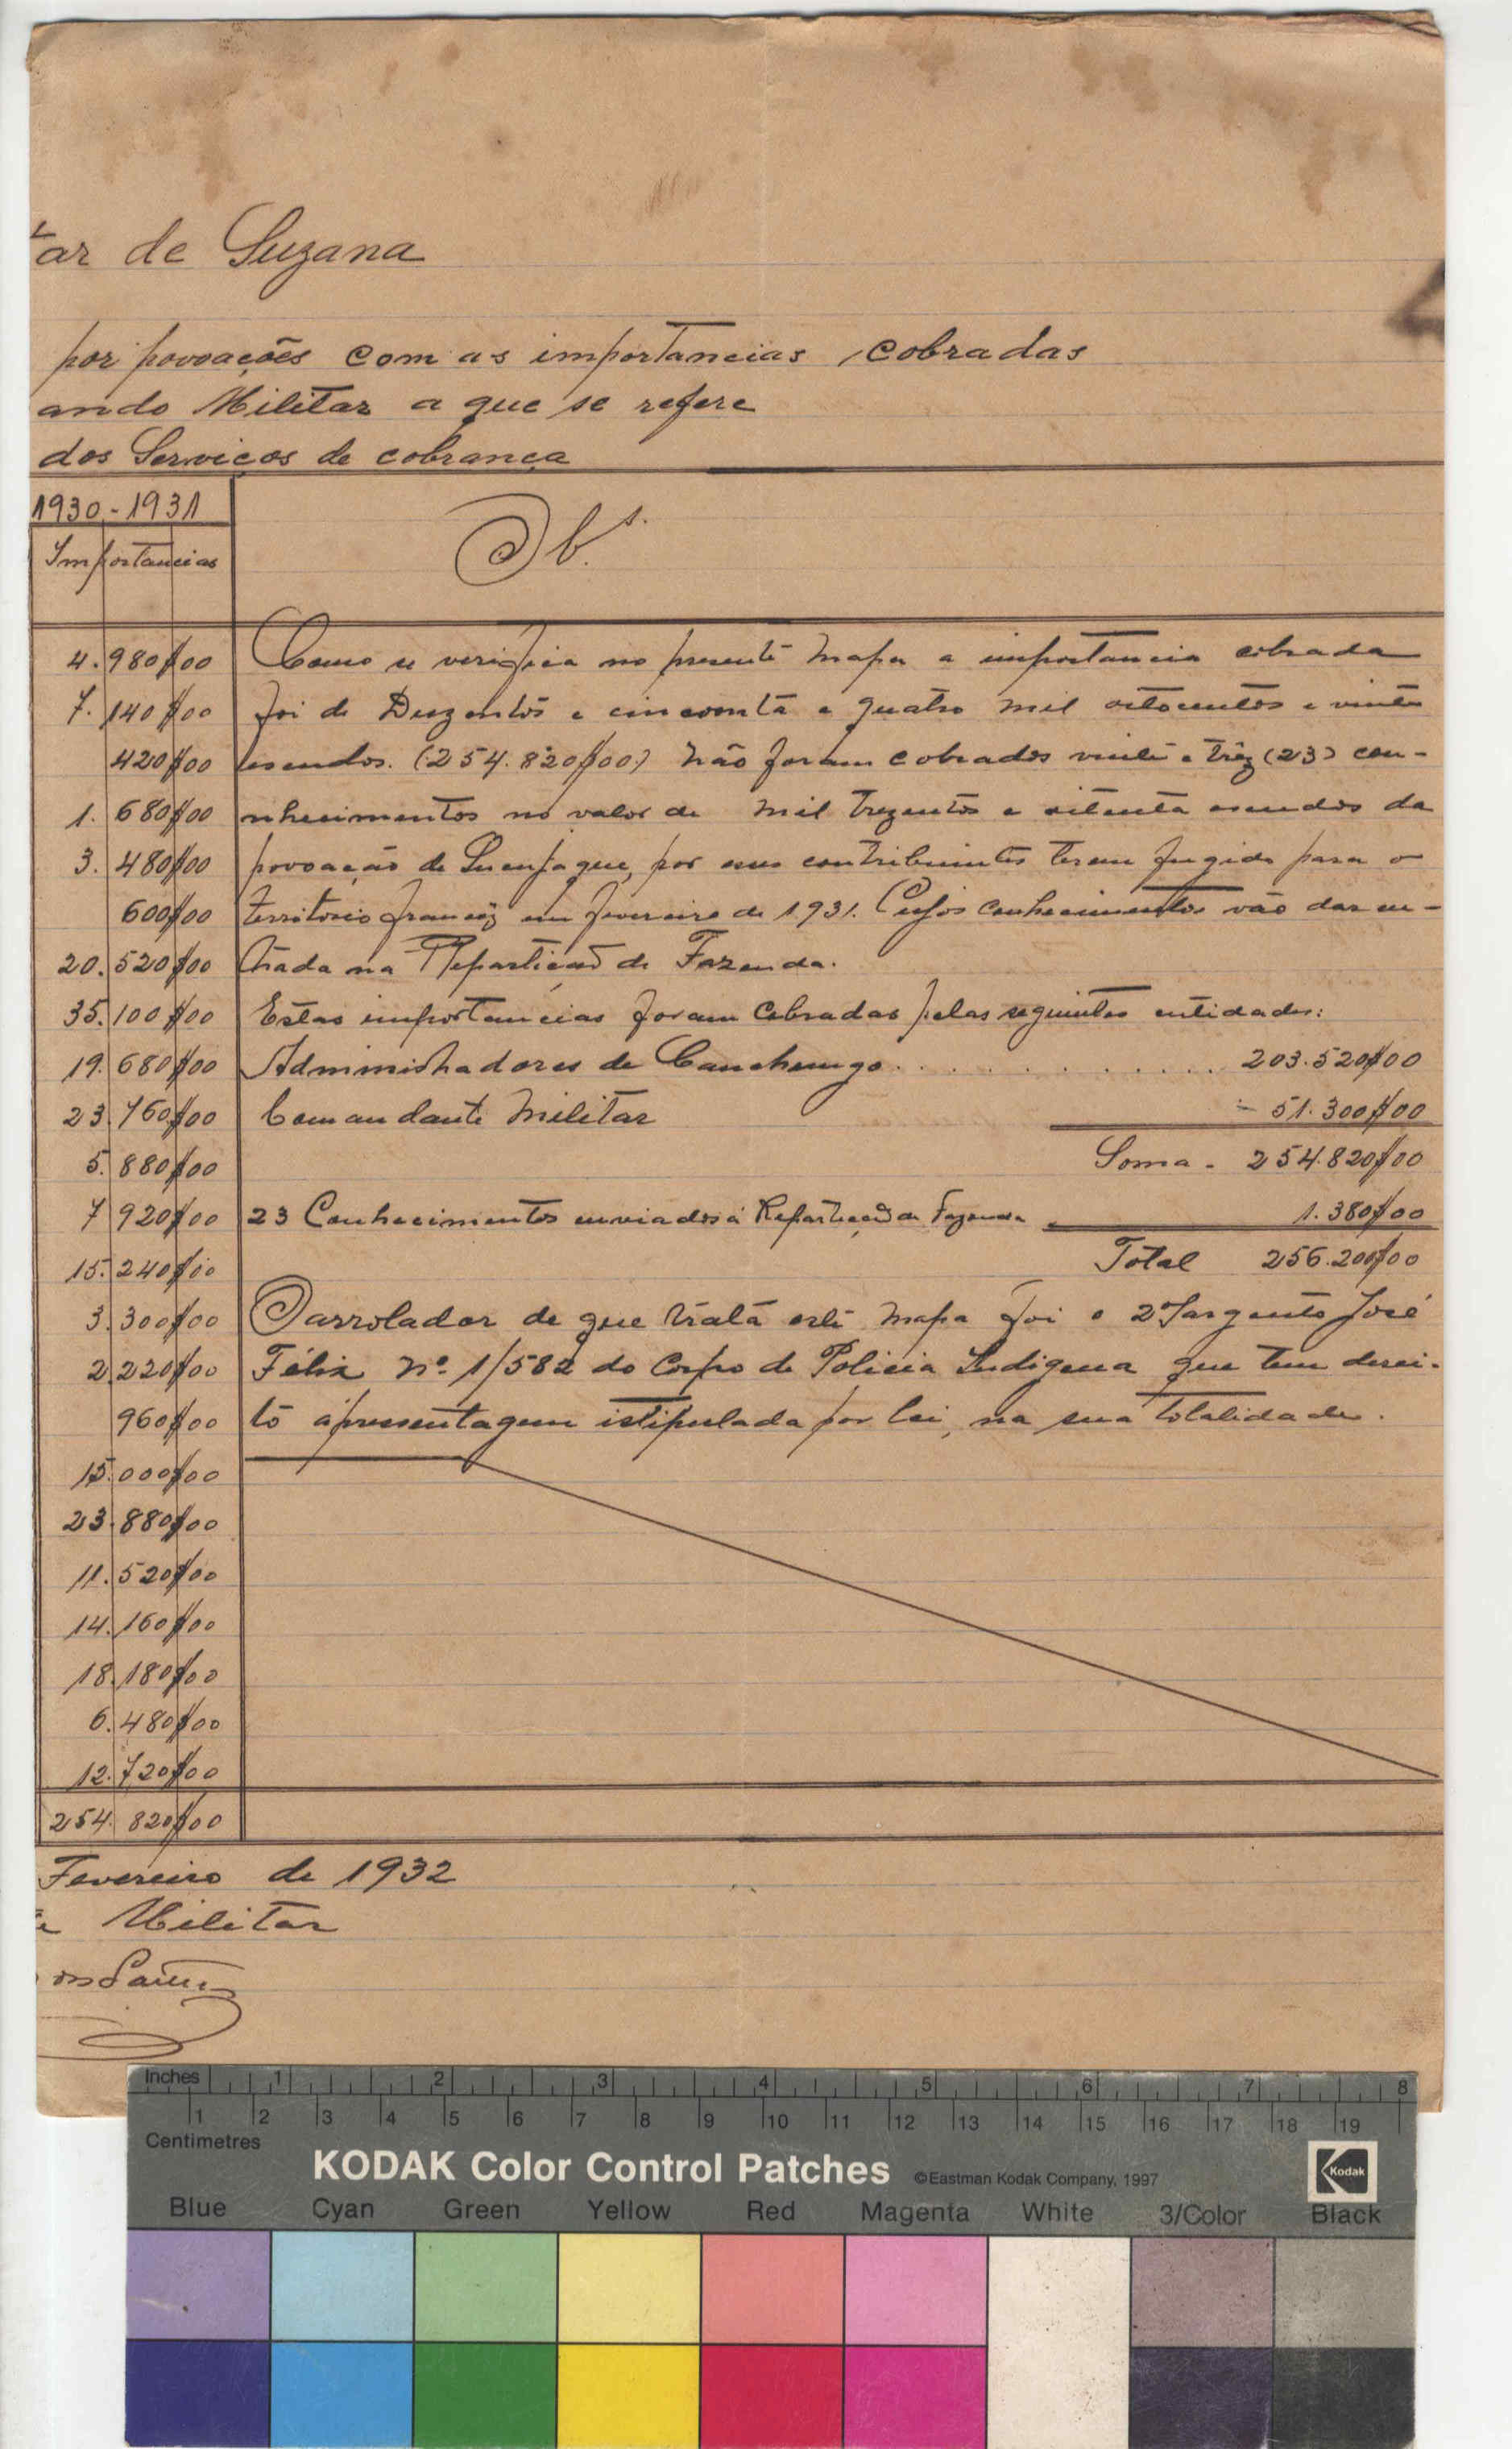 ar de Suzana
por povoações com as importancias cobradas
ando Militar a que se refere
dos Serviços de cobrança
1930-1931
Importancias
Obs.
4.980$00 Como se verifica no presente mapa a importancia cobrada
7.140$00 foi de Duzentos e cincoenta e quatro mil oitocentos e vinte
420$00 escudos. (254.820$00) não foram cobrados vinte e trêz (23) con-
1.680$00 nhecimentos no valor de mil trezentos e oitenta escudos da
3.480$00 povoação de por seus contribuintes terem fugido para o
600$00 territorio francêz em fevereiro de 1931. Cujos conhecimentos vão dar en-
20.520$00 trada na Repartição de Fazenda.
35.100$00 Estas importancias foram cobradas pelas seguintes entidades:
19.680$00 Administradores de Canchungo . . . . . . . . . . . . 203.520$00
23.760$00 Comandante Militar - 51.300$00
5.880$00 Soma - 254.820$00
7.920$00 23 Conhecimentos enviados á Repartição de Fazenda 1.380$00
15.240$00 Total 256.200$00
3.300$00 O arrolador de que trata este mapa foi o 2º Sargento José
2.220$00 Félix nº 1/582 do Corpo de Policia Indigena que tem direi-
960$00 to á pressentagem istipulada por lei, na sua totalidade.
15.000$00
23.880$00
11.520$00
14.160$00
18.180$00
6.480$00
12.720$00
254.820$00
Fevereiro de 1932
Militar
Inches 1 2 3 4 5 6 7 8
1 2 3 4 5 6 7 8 9 10 11 12 13 14 15 16 17 18 19
Centimetres
KODAK Color Control Patches ©Eastman Kodak Company, 1997 Kodak
Blue Cyan Green Yellow Red Magenta White 3/Color Black